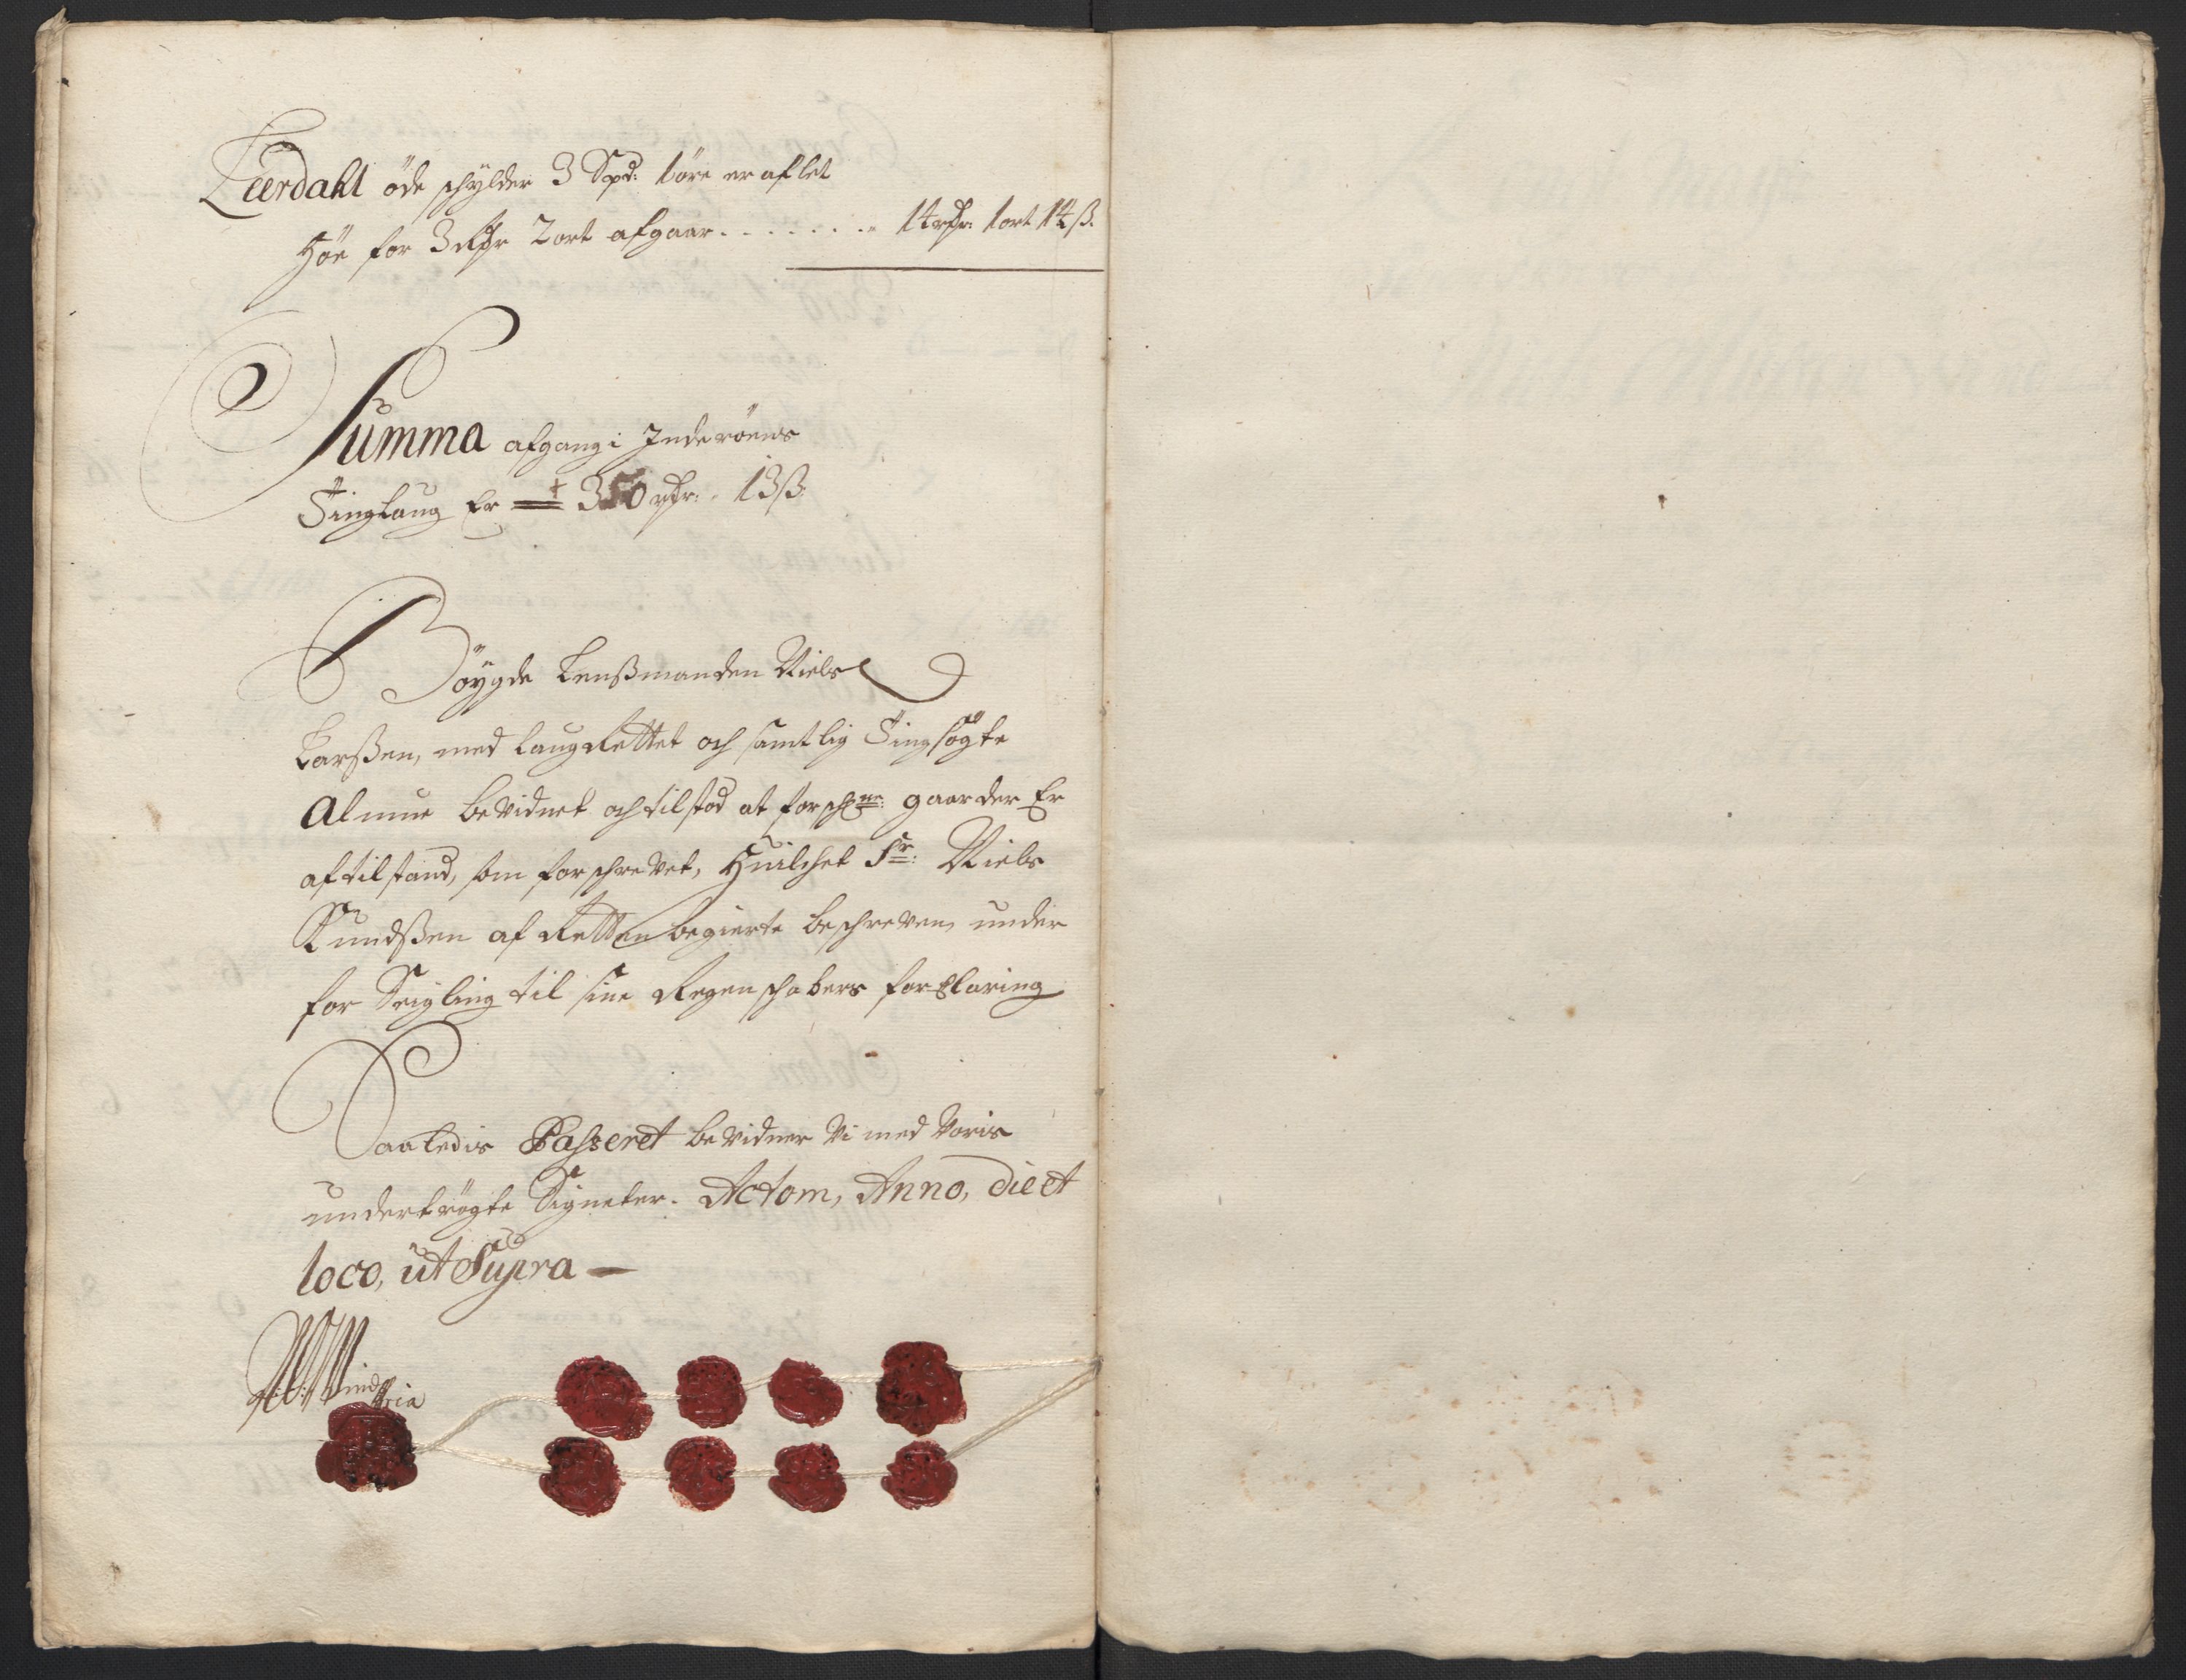 Leerdahl öde schylder 3 Spd: 1 öre er aflet
Höe for 3 rdr 2 ort afgaar . . . . . . . . 14 rdr: 1 ort 14 ß.
Summa afgang i Inderöens
Tinglaug Er 350 rdr: - 13 ß.
Böygde Lenßmanden Niels
Larßen, med LaugRettet och samtlig Tingsögte
Almue bevidnet och tilstod at forschne: gaarder Er
af tilstand, som forschrevet, Huilchet Sr: Niels
Knudßen af Retten begierte beschreven under
forSeigling til sine Regenschabers forklaring
Saaledis Passeret bevidner Vi med Voris
undertrögte Signeter. Actom, Anno, die et
loco, ut Supra —